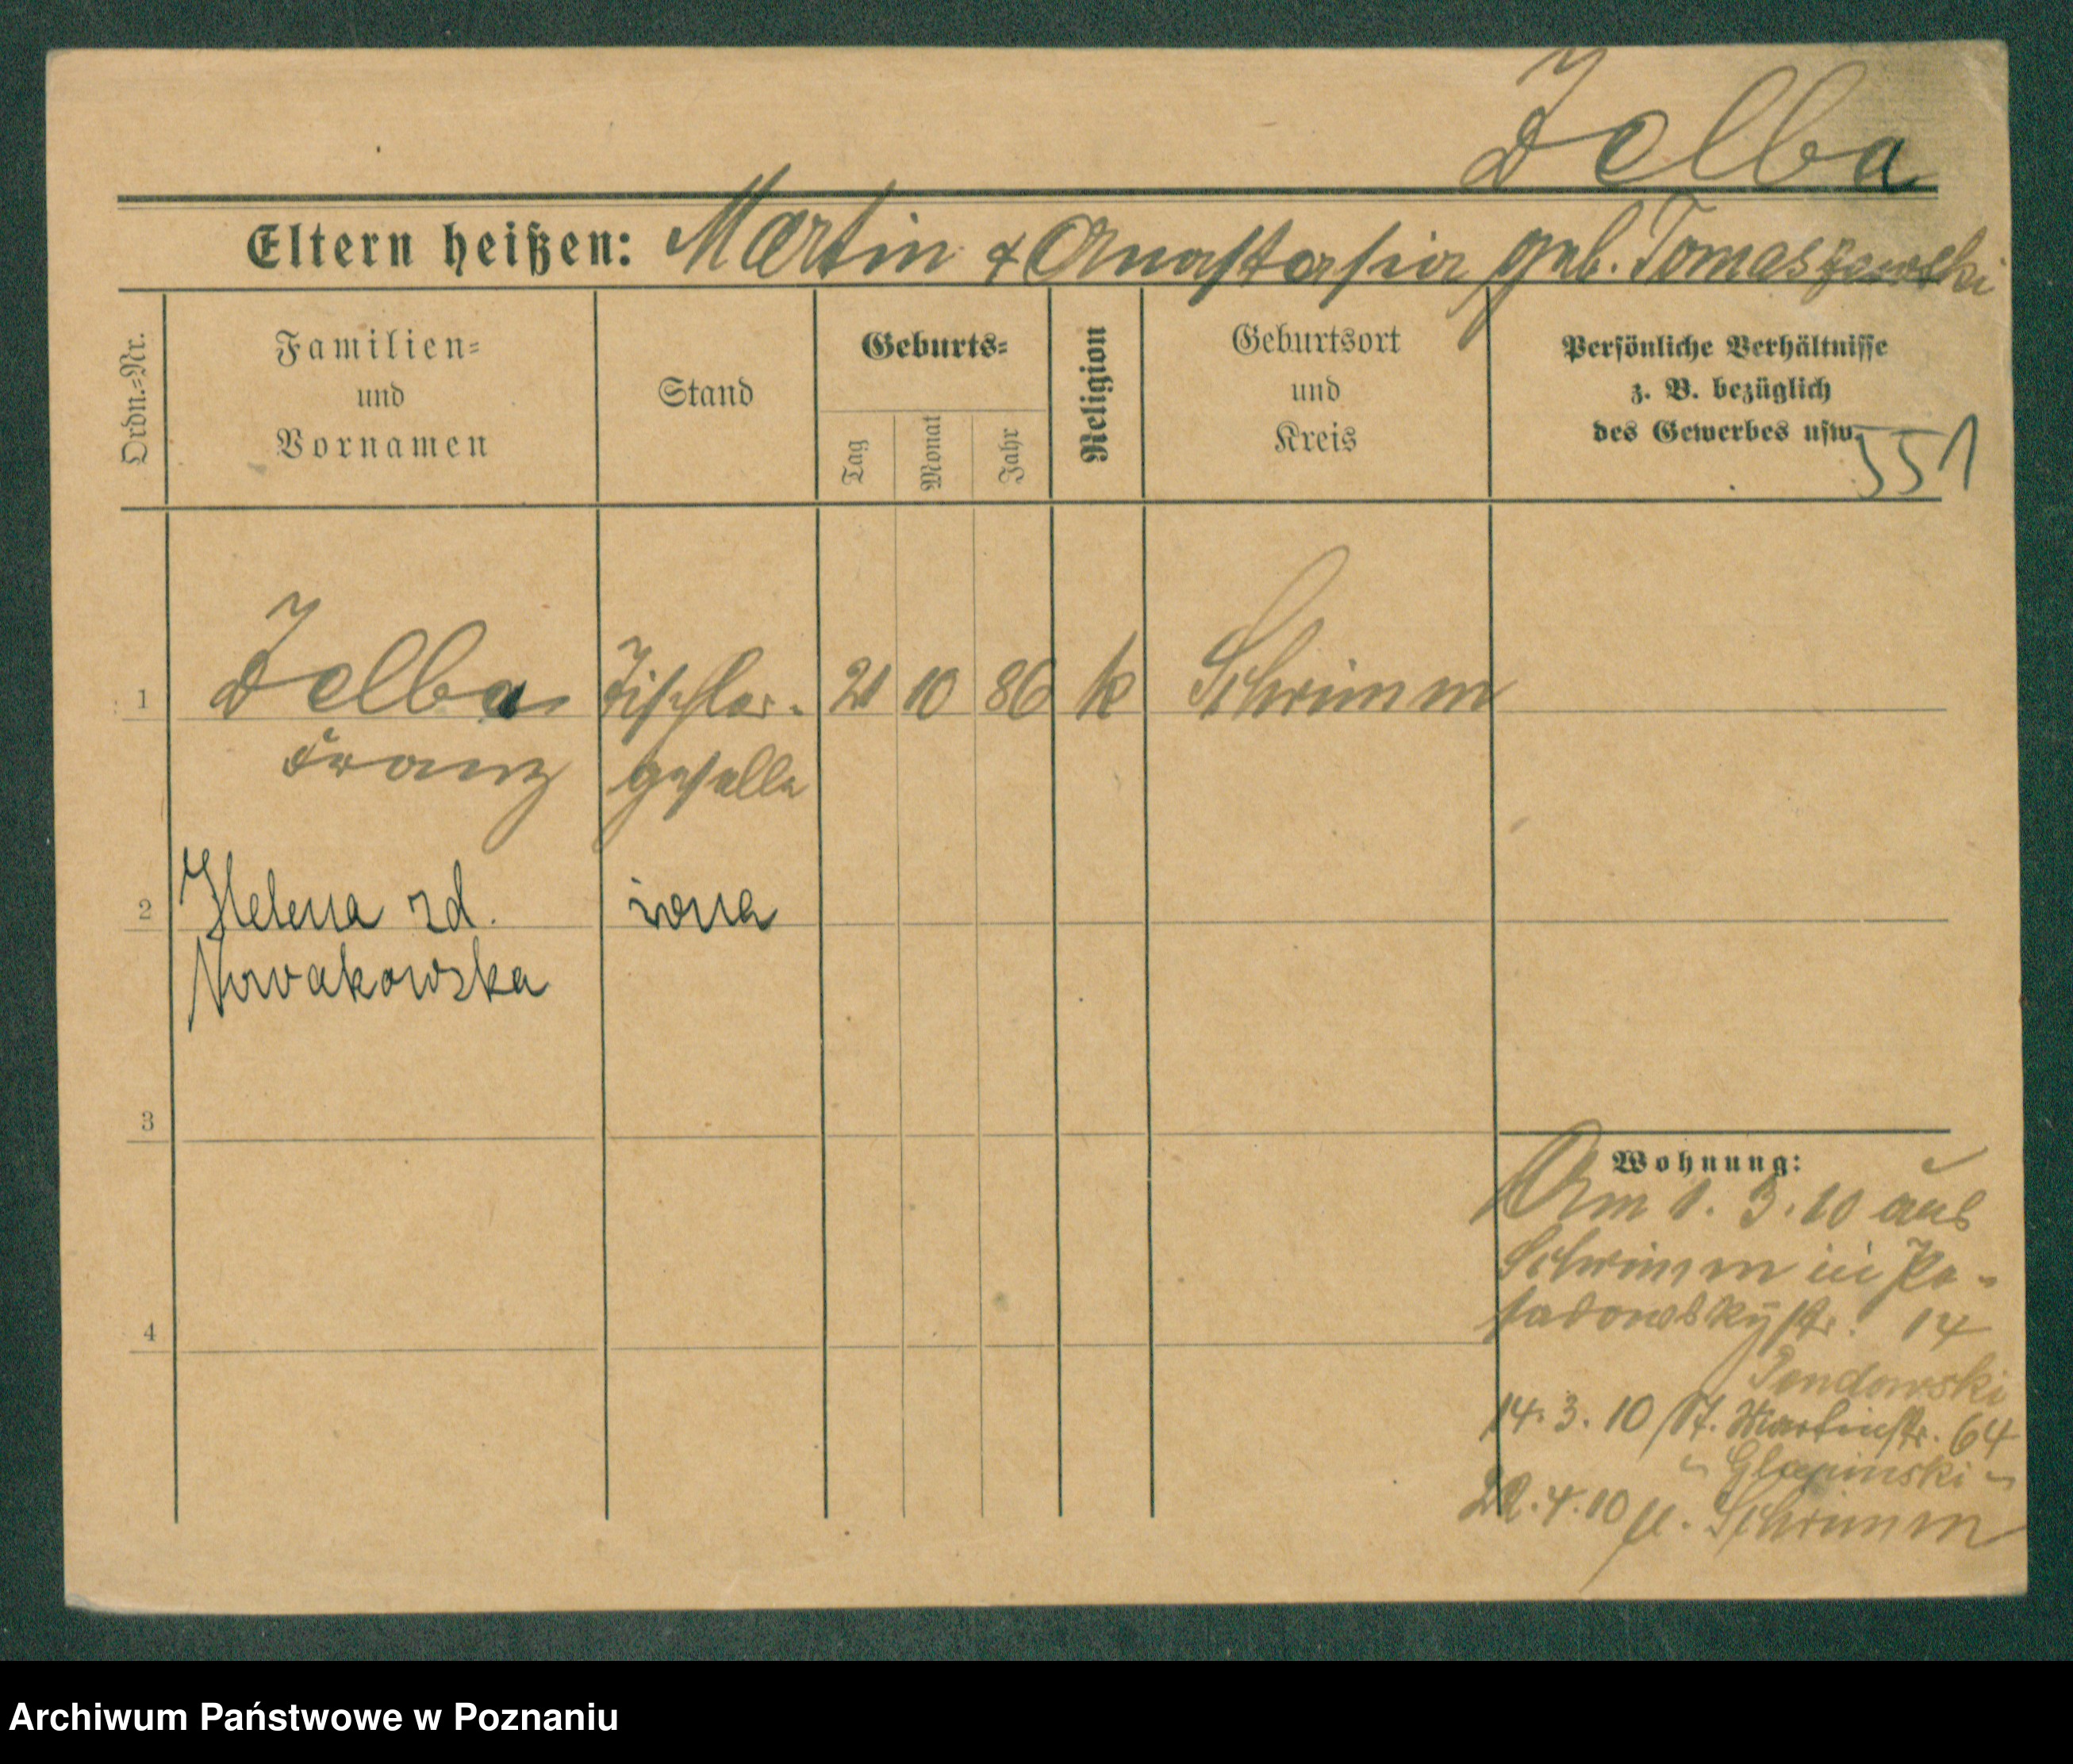 Zelba
Eltern heißen: Martin & Anastasia geb. Tomaszewski
Ordn.-Nr.
Familien-
und
Vornamen
Stand
Geburts-
Tag
Monat
Jahr
Religion
Geburtsort
und
Kreis
Persönliche Verhältnisse
z. B. bezüglich
des Gewerbes usw.
551
1 Zelba Tischler- 21 10 86 k Schrimm
Franz geselle
2 Helena zd. żona
Nowakowska
3
Wohnung:
Am 1. 3. 10 aus
Schrimm in Po-
sadowskystr. 14
4
14. 3. 10 St. Martinstr. 64
22. 4. 10 Schrimm
Archiwum Państwowe w Poznaniu